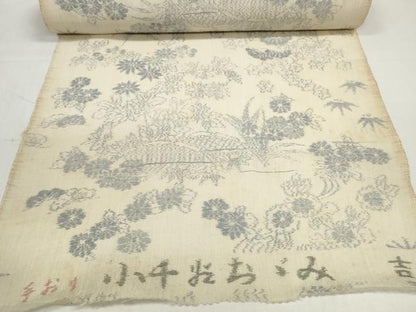 手おり
小千谷ちゞみ
吉